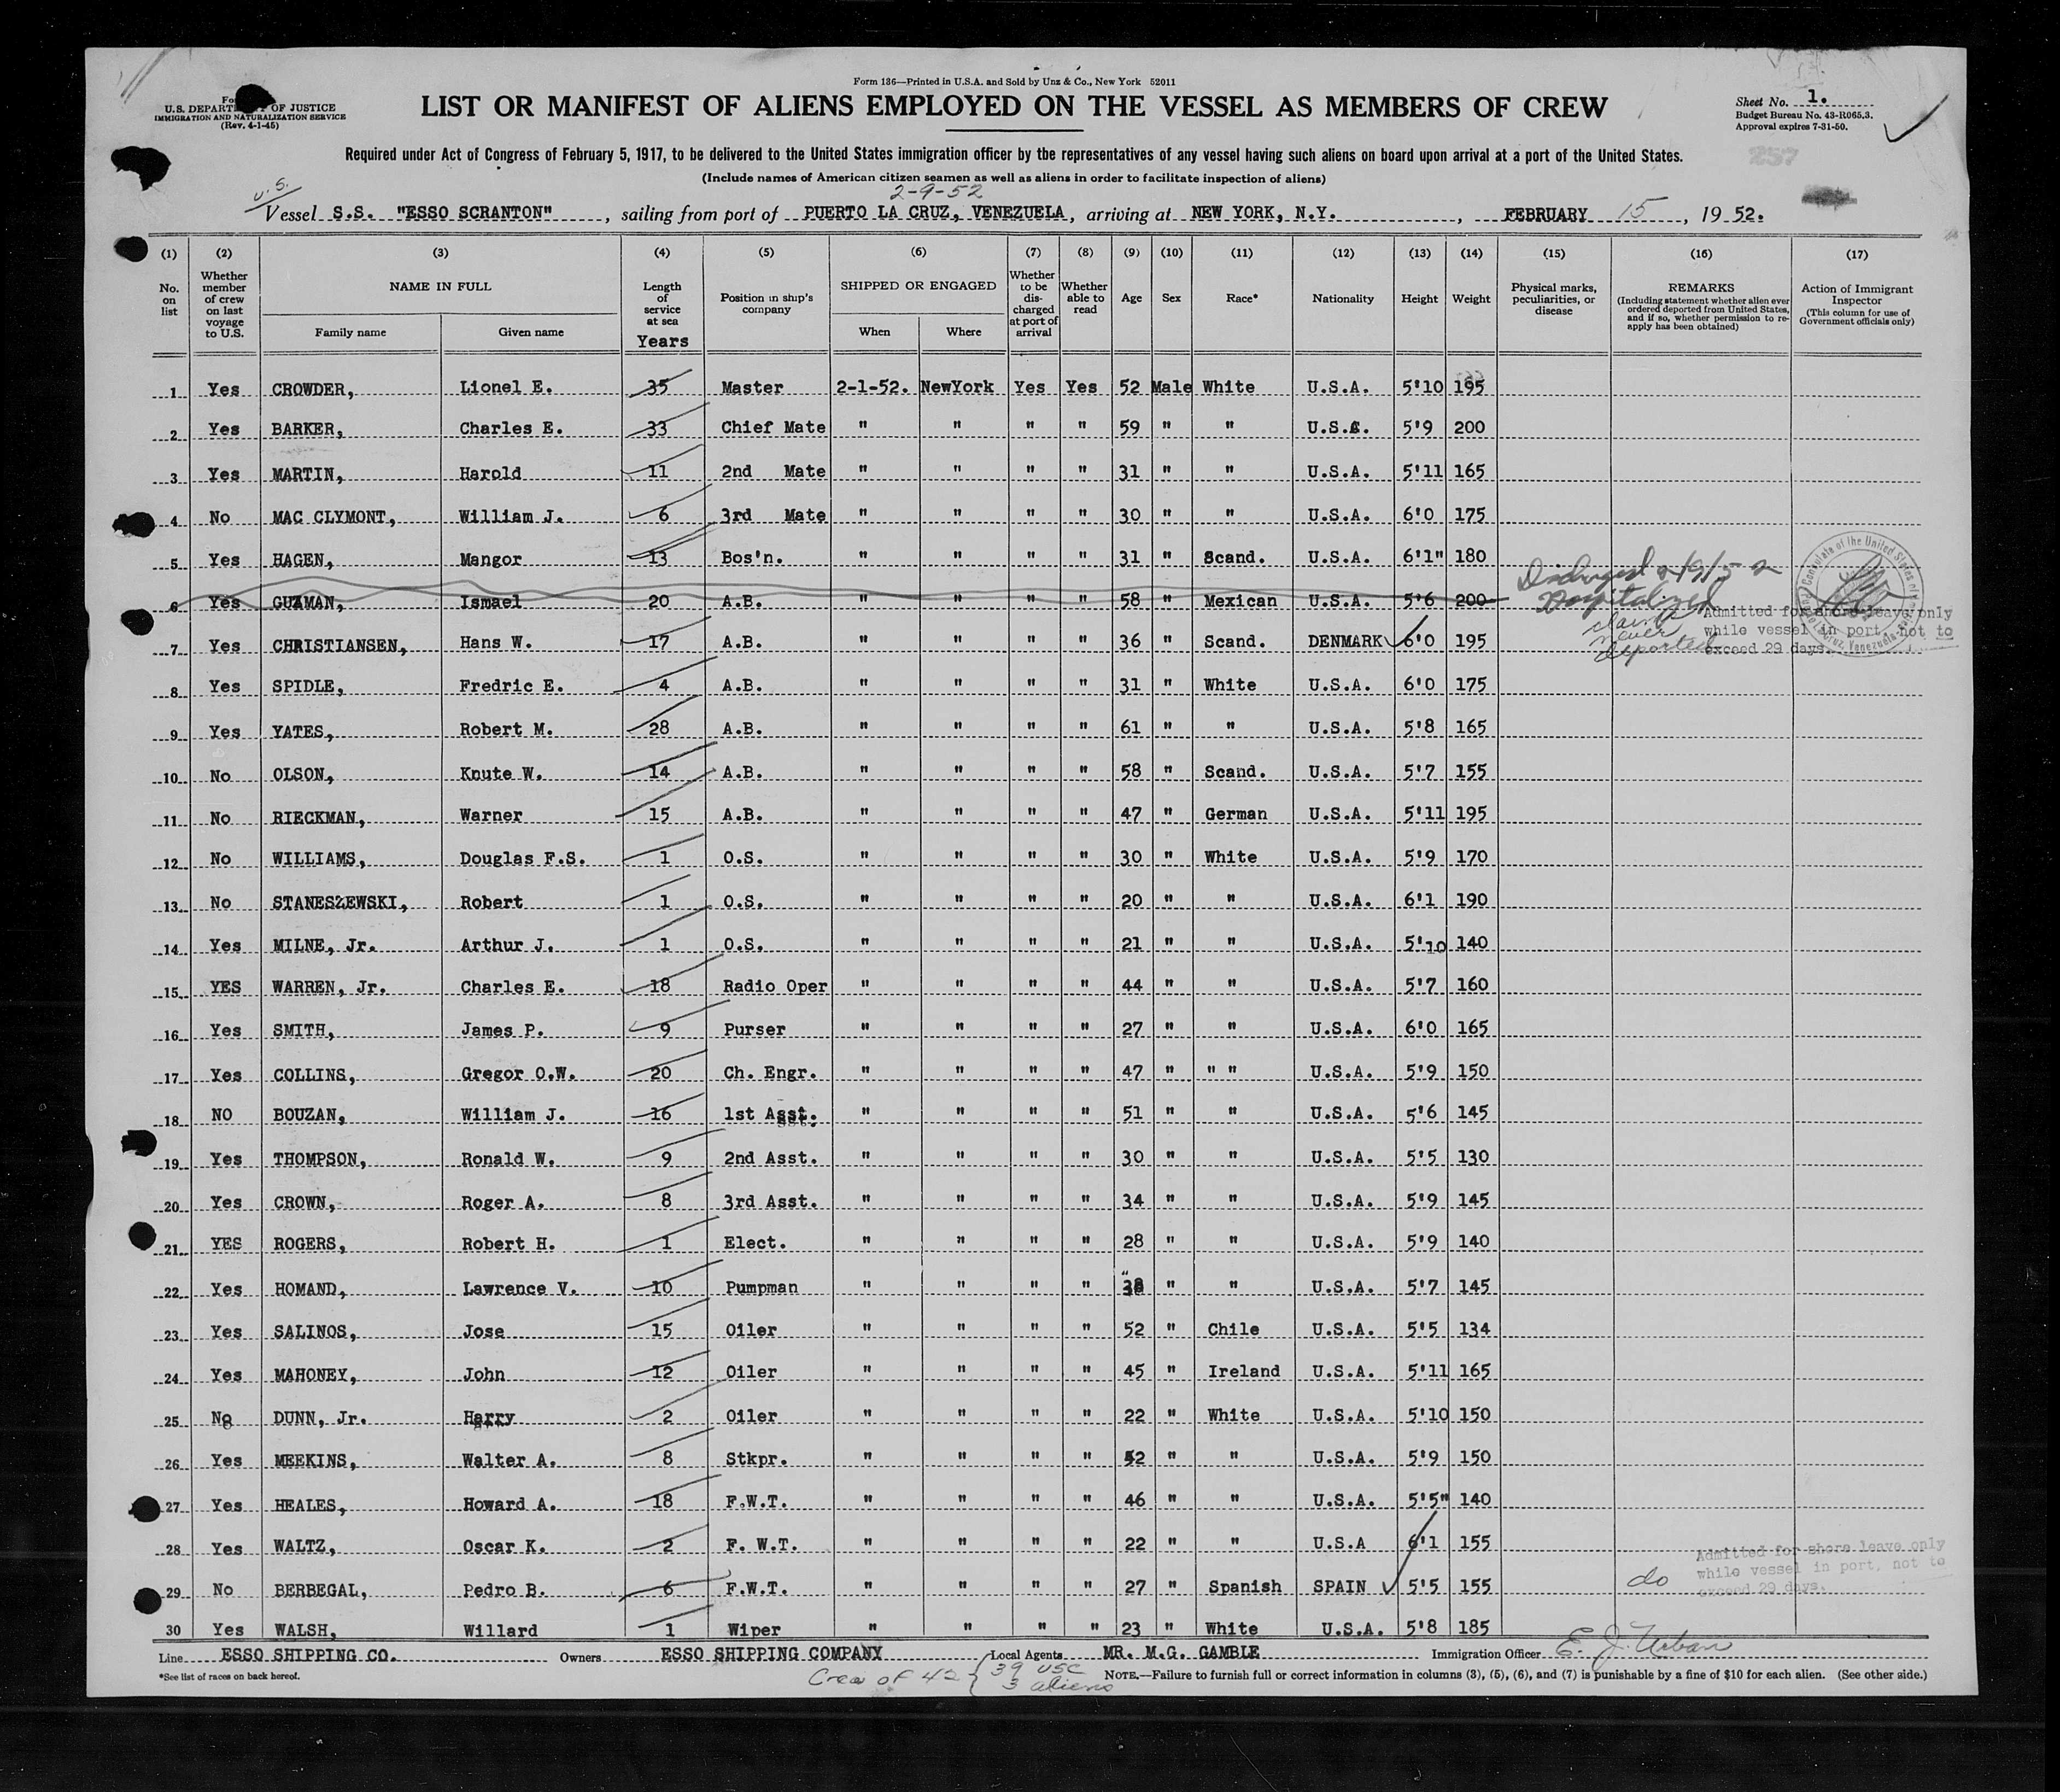 Form 136—Printed in U.S.A. and Sold by Unz & Co., New York 52011
U.S. DEPARTMENT OF JUSTICE
IMMIGRATION AND NATURALIZATION SERVICE
(Rev. 4-1-45)
LIST OR MANIFEST OF ALIENS EMPLOYED ON THE VESSEL AS MEMBERS OF CREW
Sheet No. 1.
Budget Bureau No. 43-R065.3.
Approval expires 7-31-50.
Required under Act of Congress of February 5, 1917, to be delivered to the United States immigration officer by the representatives of any vessel having such aliens on board upon arrival at a port of the United States.
257
(Include names of American citizen seamen as well as aliens in order to facilitate inspection of aliens)
U.S. 2-9-52
Vessel S.S. "ESSO SCRANTON", sailing from port of PUERTO LA CRUZ, VENEZUELA, arriving at NEW YORK, N.Y., FEBRUARY 15, 1952.
(1) (2) (3) (4) (5) (6) (7) (8) (9) (10) (11) (12) (13) (14) (15) (16) (17)
No. on list
Whether member of crew on last voyage to U.S.
NAME IN FULL
Family name Given name
Length of service at sea
Years
Position in ship's company
SHIPPED OR ENGAGED
When Where
Whether to be discharged at port of arrival
Whether able to read
Age Sex Race* Nationality Height Weight
Physical marks, peculiarities, or disease
REMARKS
(Including statement whether alien ever ordered deported from United States, and if so, whether permission to reapply has been obtained)
Action of Immigrant Inspector
(This column for use of Government officials only)
1 Yes CROWDER, Lionel E. 35 Master 2-1-52. NewYork Yes Yes 52 Male White U.S.A. 5'10 195
2 Yes BARKER, Charles E. 33 Chief Mate " " " " 59 " " U.S.A. 5'9 200
3 Yes MARTIN, Harold 11 2nd Mate " " " " 31 " " U.S.A. 5'11 165
4 No MAC CLYMONT, William J. 6 3rd Mate " " " " 30 " " U.S.A. 6'0 175
5 Yes HAGEN, Mangor 13 Bos'n. " " " " 31 " Scand. U.S.A. 6'1" 180
6 Yes GUZMAN, Ismael 20 A.B. " " " " 58 " Mexican U.S.A. 5'6 200 Discharged 2/9/52 Hospitalized
7 Yes CHRISTIANSEN, Hans W. 17 A.B. " " " " 36 " Scand. DENMARK 6'0 195 claims never deported Admitted for shore leave only while vessel in port, not to exceed 29 days.
8 Yes SPIDLE, Fredric E. 4 A.B. " " " " 31 " White U.S.A. 6'0 175
9 Yes YATES, Robert M. 28 A.B. " " " " 61 " " U.S.A. 5'8 165
10 No OLSON, Knute W. 14 A.B. " " " " 58 " Scand. U.S.A. 5'7 155
11 No RIECKMAN, Warner 15 A.B. " " " " 47 " German U.S.A. 5'11 195
12 No WILLIAMS, Douglas F.S. 1 O.S. " " " " 30 " White U.S.A. 5'9 170
13 No STANESZEWSKI, Robert 1 O.S. " " " " 20 " " U.S.A. 6'1 190
14 Yes MILNE, Jr. Arthur J. 1 O.S. " " " " 21 " " U.S.A. 5'10 140
15 YES WARREN, Jr. Charles E. 18 Radio Oper " " " " 44 " " U.S.A. 5'7 160
16 Yes SMITH, James P. 9 Purser " " " " 27 " " U.S.A. 6'0 165
17 Yes COLLINS, Gregor O.W. 20 Ch. Engr. " " " " 47 " " " U.S.A. 5'9 150
18 NO BOUZAN, William J. 16 1st Asst. " " " " 51 " " U.S.A. 5'6 145
19 Yes THOMPSON, Ronald W. 9 2nd Asst. " " " " 30 " " U.S.A. 5'5 130
20 Yes CROWN, Roger A. 8 3rd Asst. " " " " 34 " " U.S.A. 5'9 145
21 YES ROGERS, Robert H. 1 Elect. " " " " 28 " " U.S.A. 5'9 140
22 Yes HOMAND, Lawrence V. 10 Pumpman " " " " 38 " " U.S.A. 5'7 145
23 Yes SALINOS, Jose 15 Oiler " " " " 52 " Chile U.S.A. 5'5 134
24 Yes MAHONEY, John 12 Oiler " " " " 45 " Ireland U.S.A. 5'11 165
25 No DUNN, Jr. Harry 2 Oiler " " " " 22 " White U.S.A. 5'10 150
26 Yes MEEKINS, Walter A. 8 Stkpr. " " " " 52 " " U.S.A. 5'9 150
27 Yes HEALES, Howard A. 18 F.W.T. " " " " 46 " " U.S.A. 5'5" 140
28 Yes WALTZ, Oscar K. 2 F. W.T. " " " " 22 " " U.S.A 6'1 155
29 No BERBEGAL, Pedro B. 6 F.W.T. " " " " 27 " Spanish SPAIN 5'5 155 do Admitted for shore leave only while vessel in port, not to exceed 29 days.
30 Yes WALSH, Willard 1 Wiper " " " " 23 " White U.S.A. 5'8 185
Line ESSO SHIPPING CO. Owners ESSO SHIPPING COMPANY Local Agents MR. M.G. GAMBLE Immigration Officer E. J. Urban
*See list of races on back hereof.
Crew of 42 { 39 USC
3 aliens
NOTE.—Failure to furnish full or correct information in columns (3), (5), (6), and (7) is punishable by a fine of $10 for each alien. (See other side.)